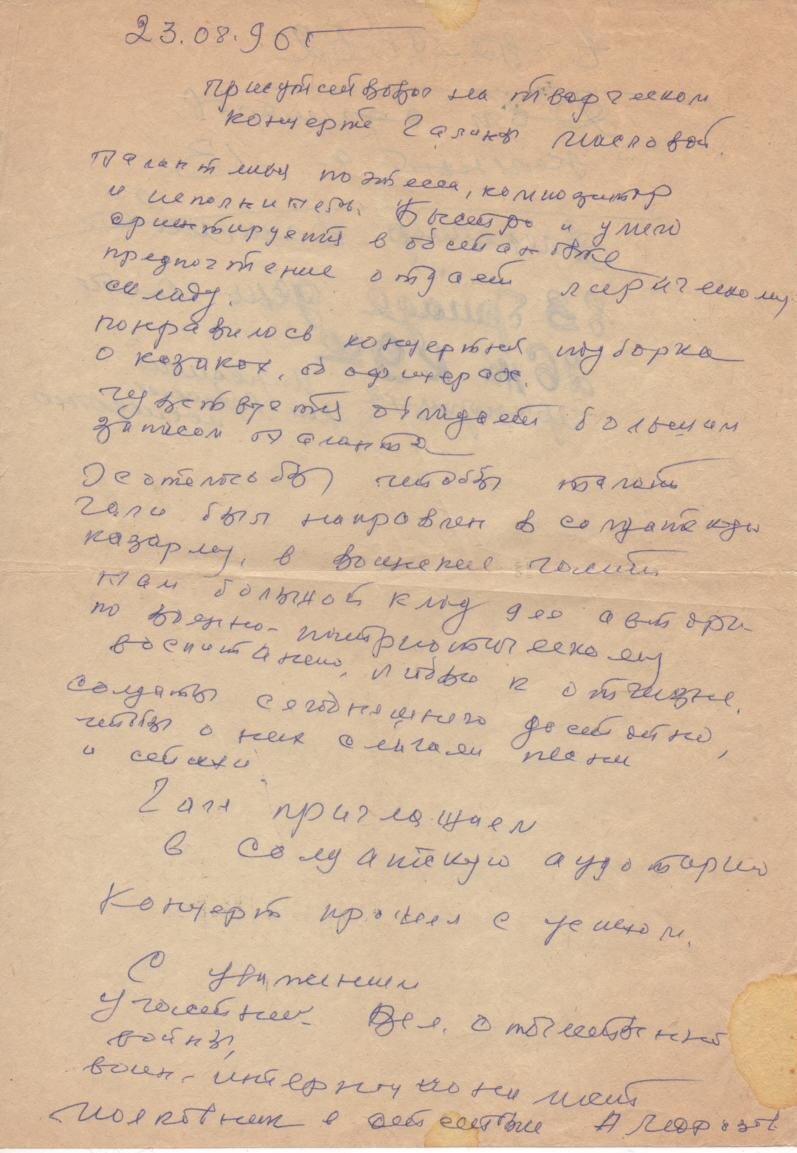 23.08.96г
Присутствовал на творческом
концерте Галины Масловой.
Талантливая поэтесса, композитор
и исполнитель. Быстро и умело
ориентируется в обстановке
предпочтение отдает лирическому
складу.
понравилось концертная подборка
о казаках, об офицерах.
чувствуется обладает большим
запасом таланта
Хотелось бы чтобы талант
Гали был направлен в солдатскую
казарму, в воинские части
там большой клад для автора
по военно-патриотическому
воспитанию, любви к отчизне.
солдаты сегодняшнего достойно,
чтобы о них слагали песни
и стихи
Галя приглашаем
в солдатскую аудиторию
Концерт прошел с успехом.
С уважением
участник Вел. отечественной
войны,
воин-интернационалист
полковник в отставке А